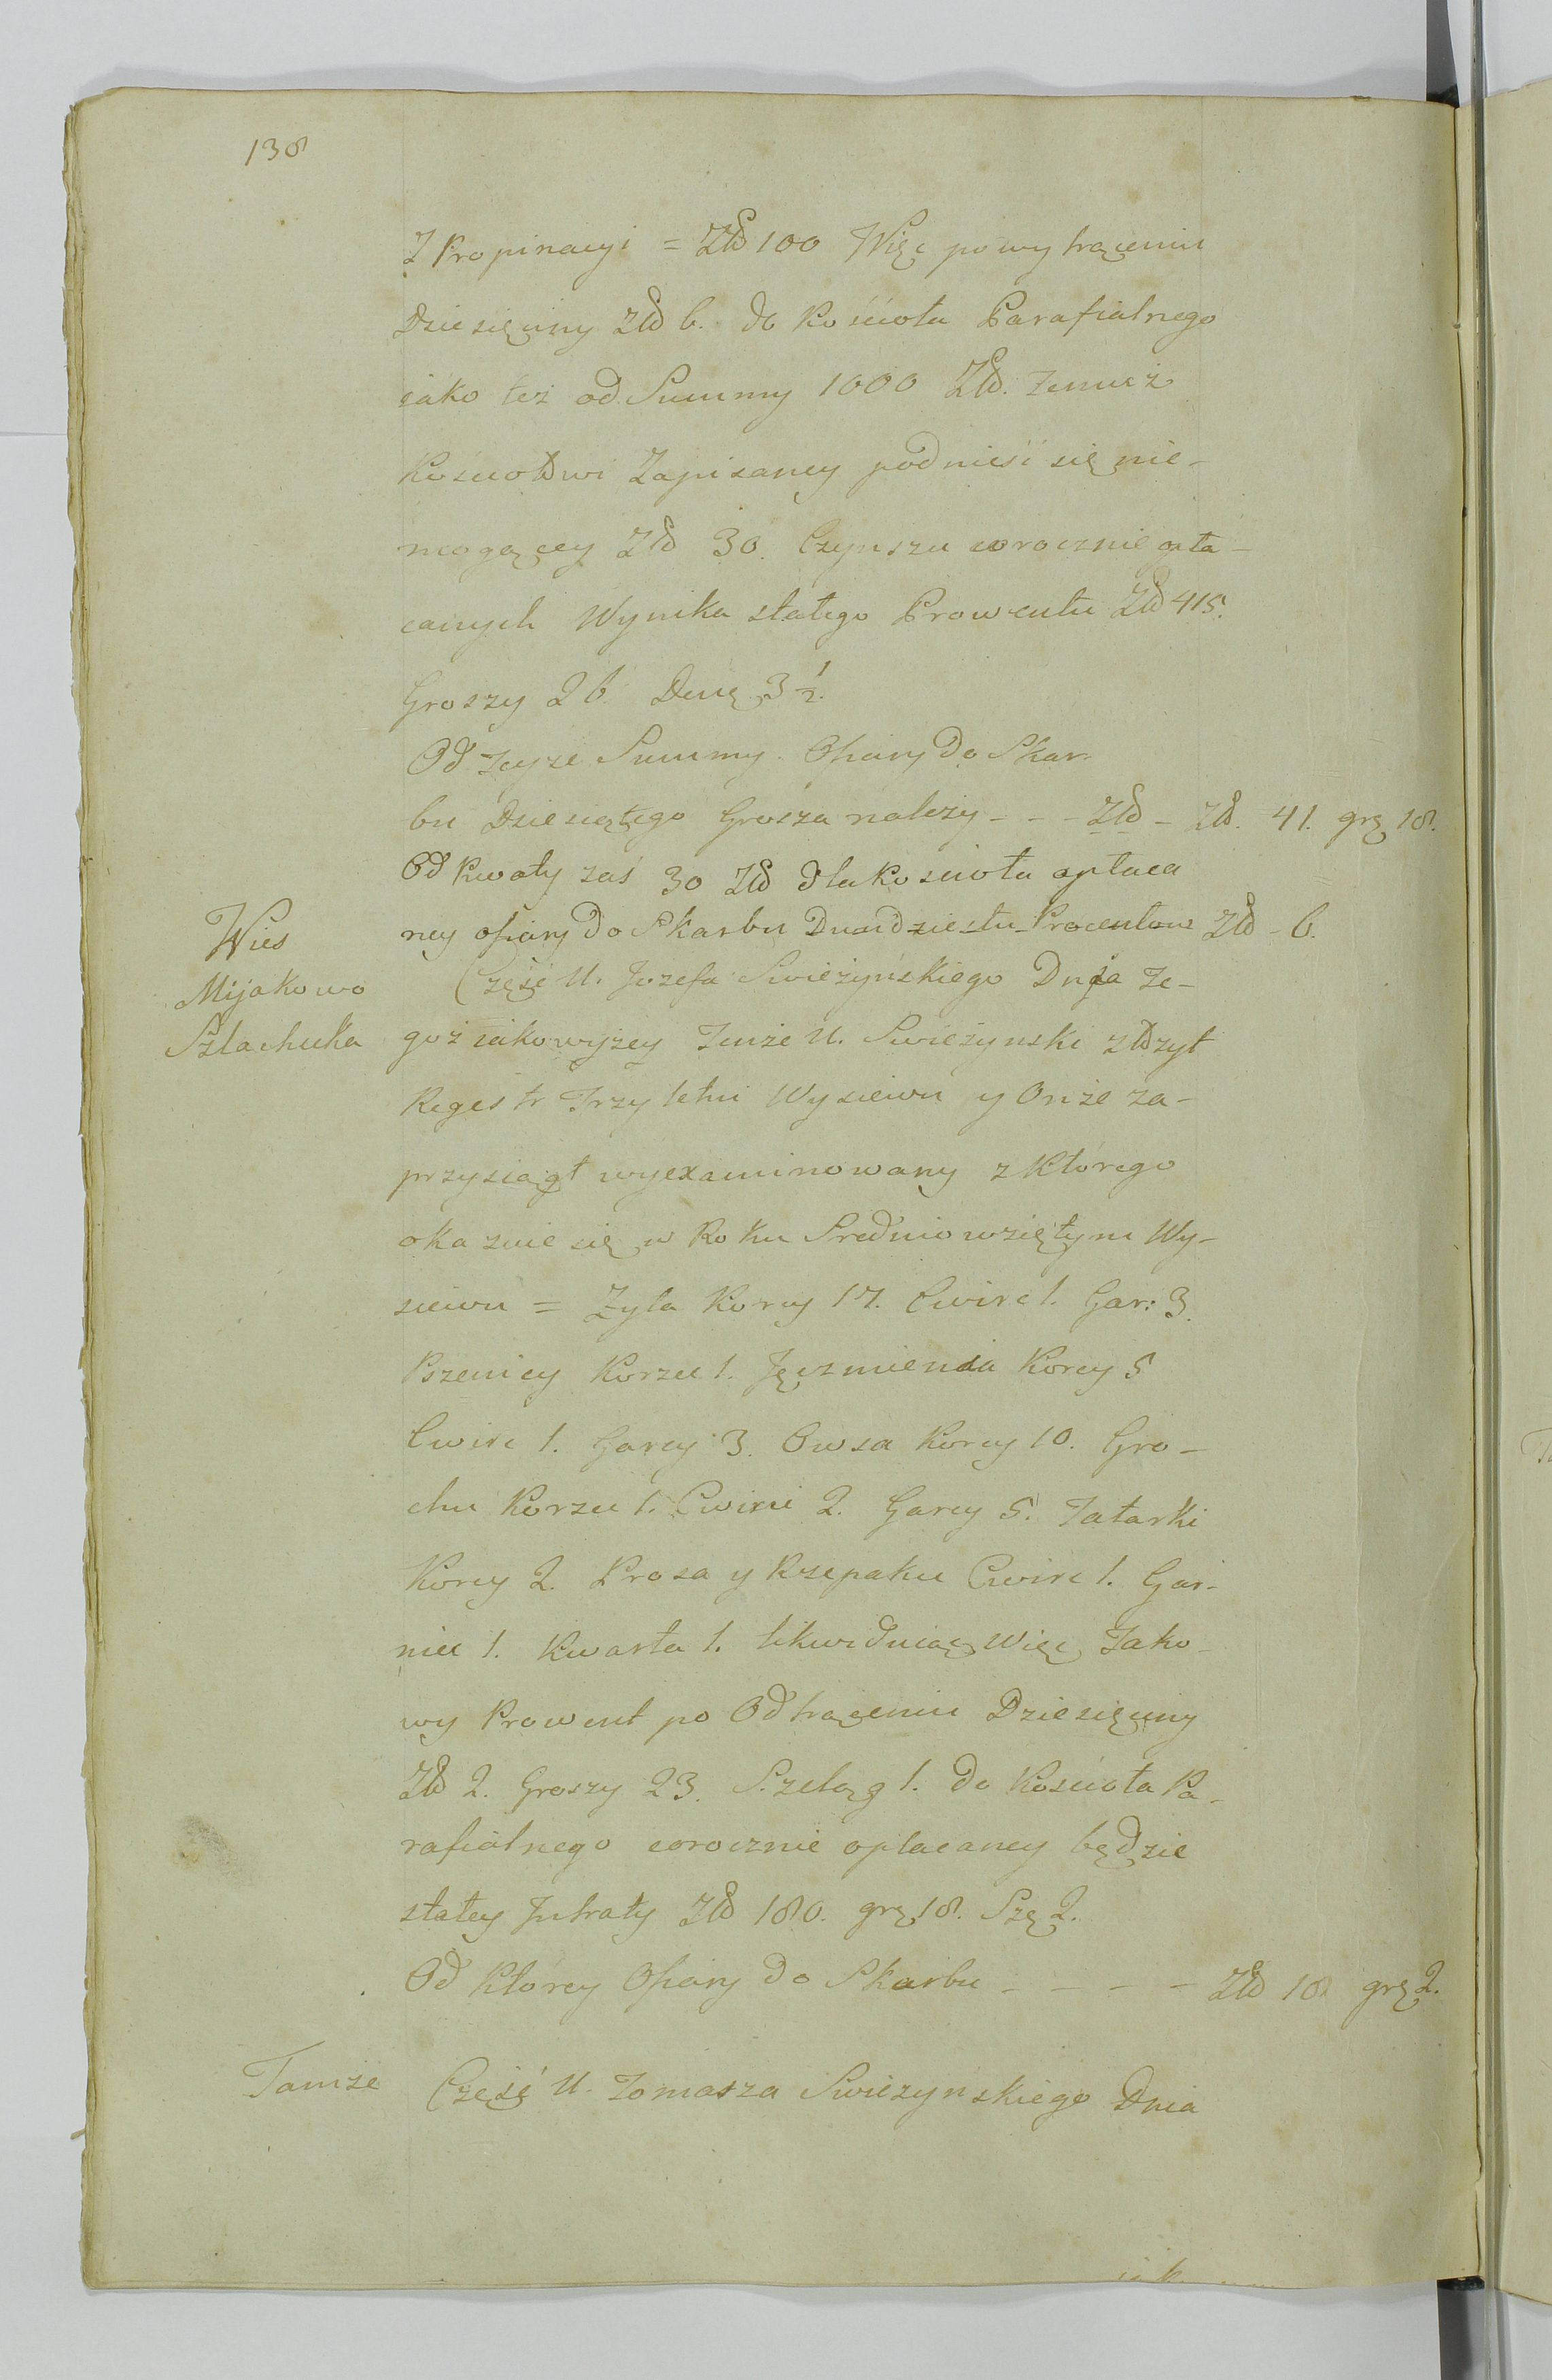 138
Z Propinacyi = Złł 100 Więc po wytrąceniu
Dziesięciny Złł 6. do Kościoła Parafialnego
iako też od Summy 1000 Złł. temuż
Kosciołłwi Zapisaney podnieść się nie-
mogącey Złł 30. Czynszu corocznie opła-
canych Wynika stałego Prowentu Złł 415.
Groszy 26. Denę 3 1/2.
Od teyże Summy Ofiary do Skar-
bu Dziesiątego Grosza należy - - - Złł - Zł. 41. grę 18.
Od kwoty zaś 30 Złł dla Kościoła opłaca
ney ofiary do Skarbu Dwudziestu Procentow Złł - 6.
Wies
Mijakowo
Szlachecka
Część U. Jozefa Swieżyńskiego Dnia te-
goż iako wyżey Tenże U. Swieżynski złłżył
Regestr Trzyletni Wysiewu y Onże za-
przysiągł wyexaminowany z którego
okazuie się w Roku Srednio wziętym Wy-
siewu = Zyta Korcy 17. Cwierć 1. Gar: 3.
Pszenicy Korzec 1. Jęczmienia Korcy 5
Cwierć 1. Garcy 3. Owsa Korcy 10. Gro-
chu Korzec 1. Cwierci 2. Garcy 5. Tatarki
Korcy 2. Prosa y Rzepaku Cwierć 1. Gar-
niec 1. Kwarta 1. likwiduiąc Więc Tako-
wy Prowent po Odtrąceniu Dziesięciny
Złł 2. Groszy 23. Szeląg 1. do Kościoła Pa-
rafialnego corocznie opłacaney będzie
stałey Jntraty Złł 180. grę 18. Szę 2.
Od którey Ofiary do Skarbu - - - - Złł 18 grę 2.
Tamże
Część U. Tomasza Swieżynskiego Dnia